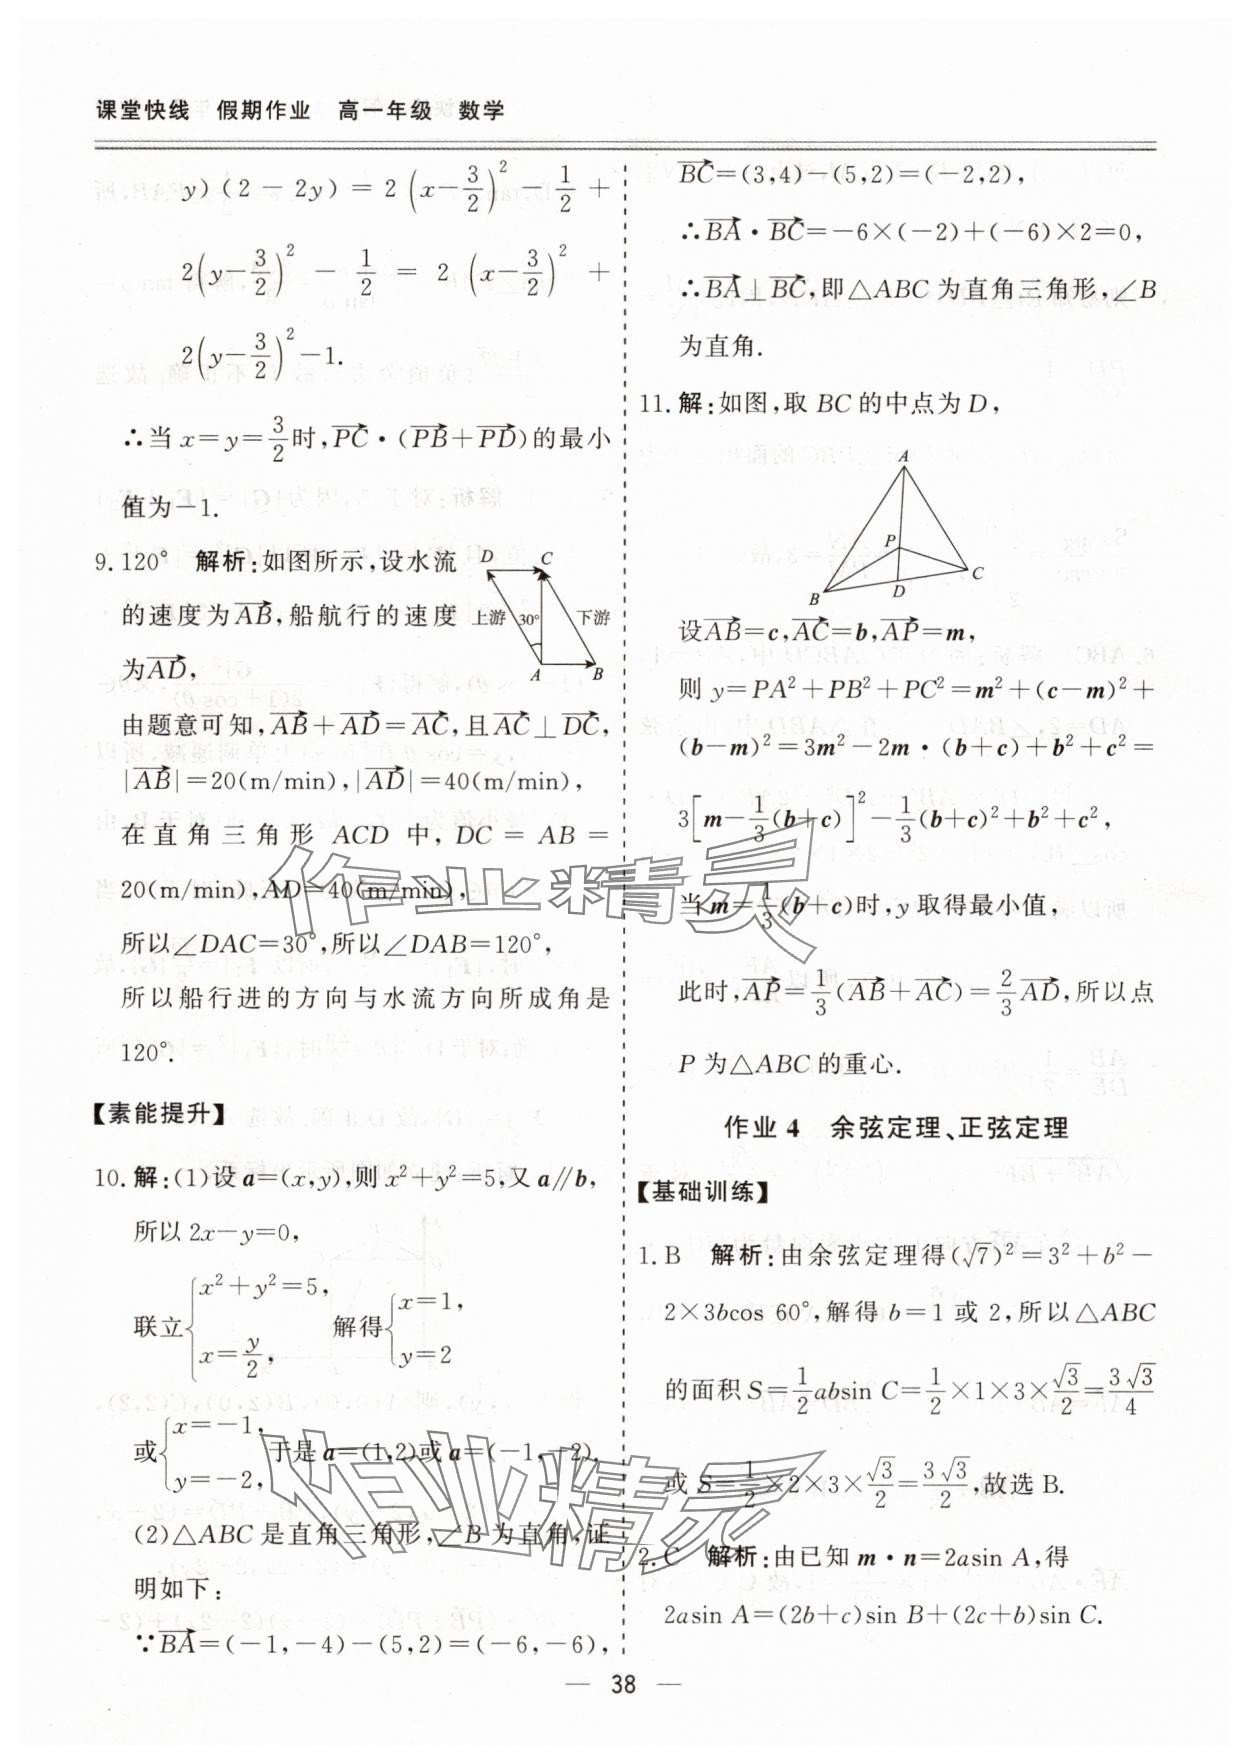 课堂快线 假期作业 高一年级 数学
y)(2－2y)＝2(x－3/2)²－1/2＋
2(y－3/2)²－1/2＝2(x－3/2)²＋
2(y－3/2)²－1.
∴当 x＝y＝3/2时,PC→·(PB→＋PD→)的最小
值为－1.
9. 120° 解析:如图所示,设水流
的速度为AB→,船航行的速度
为AD→,
D C 上游 30° 下游 A B
由题意可知,AB→＋AD→＝AC→,且AC→⊥DC→,
|AB→|＝20(m/min),|AD→|＝40(m/min),
在直角三角形 ACD 中, DC＝AB＝
20(m/min),AD＝40(m/min),
所以∠DAC＝30°,所以∠DAB＝120°,
所以船行进的方向与水流方向所成角是
120°.
【素能提升】
10. 解:(1)设 a＝(x,y),则 x²＋y²＝5,又 a∥b,
所以 2x－y＝0,
联立{x²＋y²＝5, x＝y/2, 解得{x＝1, y＝2
或{x＝－1, y＝－2, 于是 a＝(1,2)或 a＝(－1,－2).
(2)△ABC 是直角三角形,∠B 为直角,证
明如下:
∵BA→＝(－1,－4)－(5,2)＝(－6,－6),
BC→＝(3,4)－(5,2)＝(－2,2),
∴BA→·BC→＝－6×(－2)＋(－6)×2＝0,
∴BA→⊥BC→,即△ABC 为直角三角形,∠B
为直角.
11. 解:如图,取 BC 的中点为 D,
A P B D C
设AB→＝c,AC→＝b,AP→＝m,
则 y＝PA²＋PB²＋PC²＝m²＋(c－m)²＋
(b－m)²＝3m²－2m·(b＋c)＋b²＋c²＝
3[m－1/3(b＋c)]²－1/3(b＋c)²＋b²＋c²,
当 m＝1/3(b＋c)时,y 取得最小值,
此时,AP→＝1/3(AB→＋AC→)＝2/3AD→,所以点
P 为△ABC 的重心.
作业 4 余弦定理、正弦定理
【基础训练】
1. B 解析:由余弦定理得(√7)²＝3²＋b²－
2×3bcos 60°,解得 b＝1 或 2,所以△ABC
的面积 S＝1/2absin C＝1/2×1×3×√3/2＝3√3/4
或 S＝1/2×2×3×√3/2＝3√3/2,故选 B.
2. C 解析:由已知 m·n＝2asin A,得
2asin A＝(2b＋c)sin B＋(2c＋b)sin C.
— 38 —
作业精灵
作业精灵